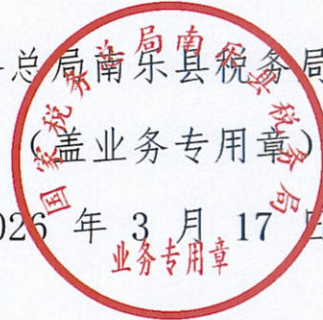 总局南乐县税务局
（盖业务专用章）
026 年 3 月 17 日
国家税务总局南乐县税务局
业务专用章